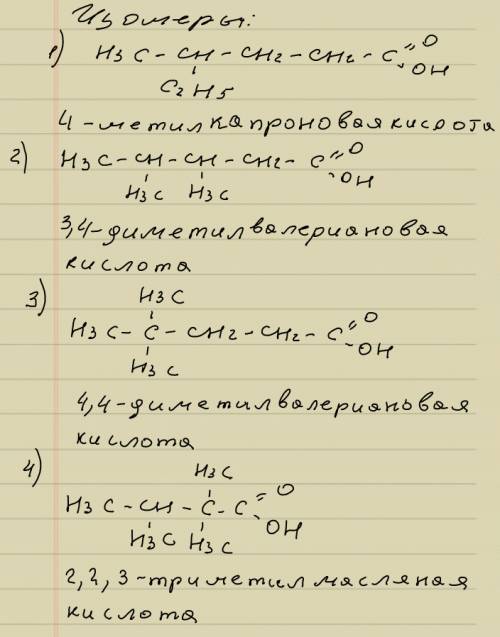 Изомеры:
1) H3C - CH - CH2 - CH2 - C = O
OH
C2H5
4-метилкапроновая кислота
2) H3C - CH - CH - CH2 - C = O
OH
H3C H3C
3,4-диметилвалериановая
кислота
H3C
3) H3C - C - CH2 - CH2 - C = O
OH
H3C
4,4-диметилвалериановая
кислота
4) H3C
H3C - CH - C - C = O
OH
H3C H3C
2,2,3-триметилмасляная
кислота